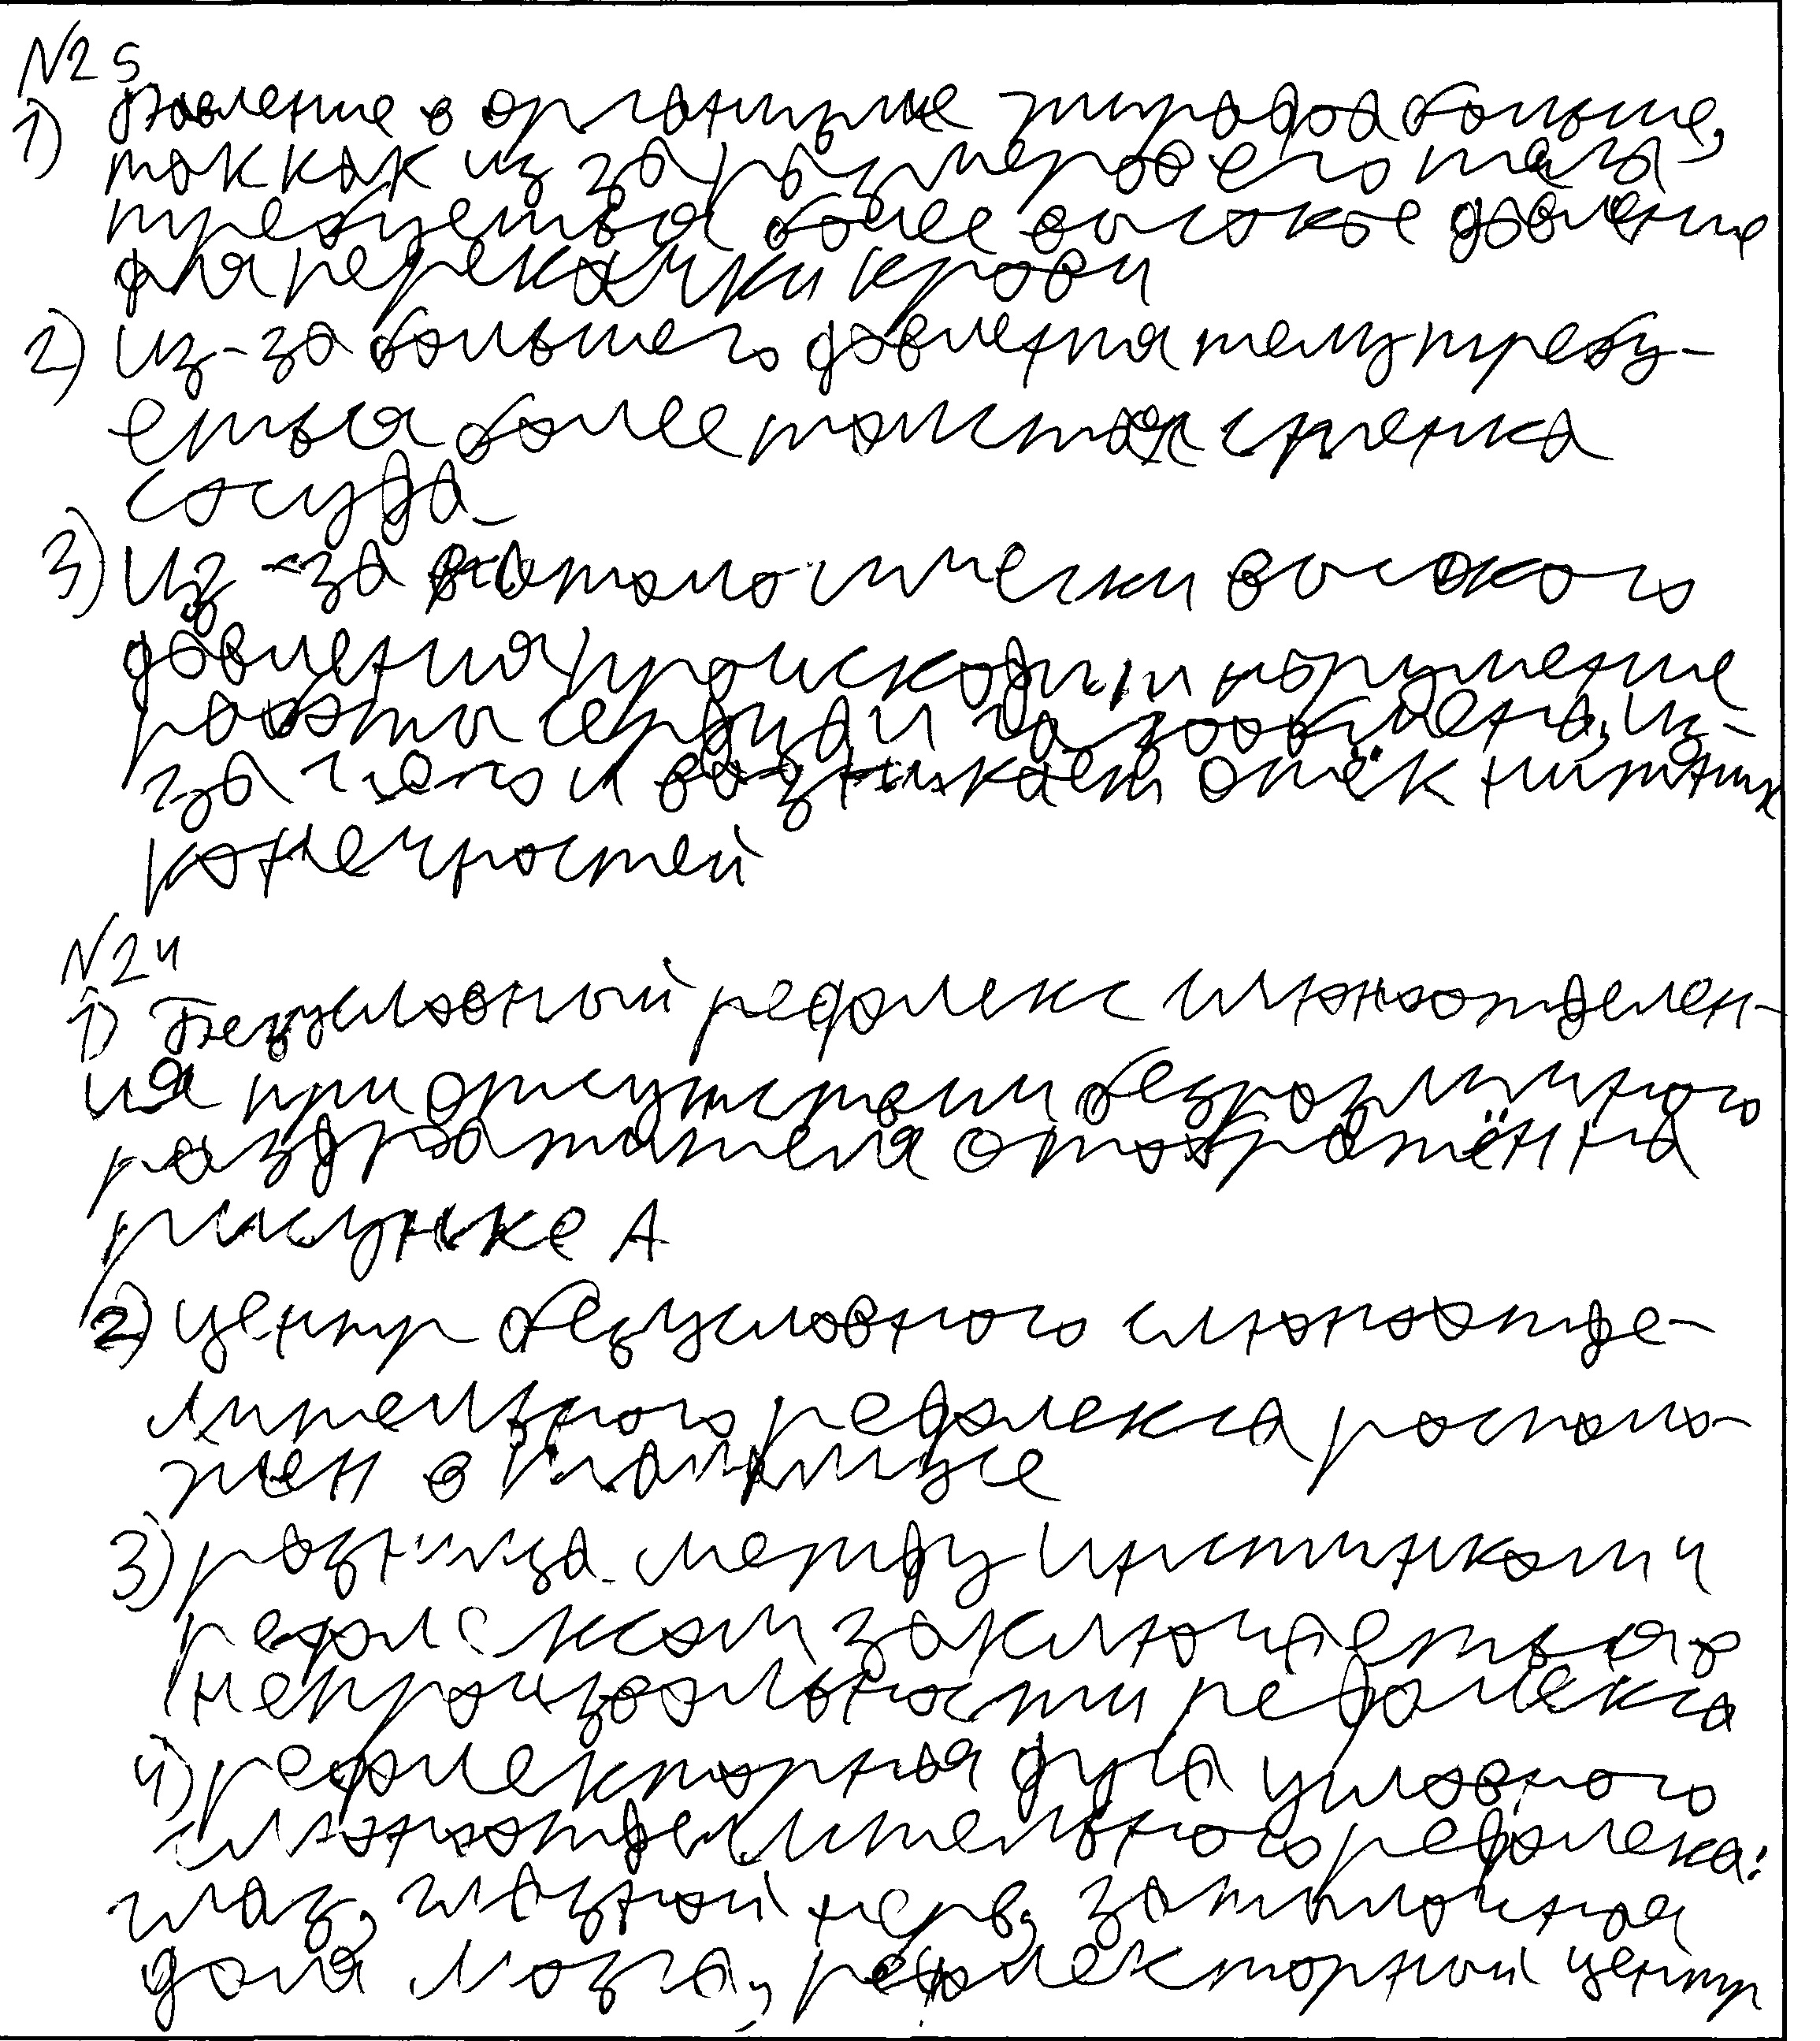 N25
1) Давление в организме жирафа больше,
так как из за размеров его тела
требуется более высокое давление
для перекачки крови
2) Из-за большего давления телу требу-
ется более толстая стенка
сосуда
3) Из-за патологически высокого
давления происходит нарушение
работы сердца и газообмена, из-
за чего и возникает отёк нижних
конечностей
N24
1) Безусловный рефлекс слюноотделен-
ия при отсутствии безразличного
раздражителя отображён на
рисунке А
2) центр безусловного слюноотде-
лительного рефлекса располо-
жен в
3) разница между инстинктом и
рефлексом заключается в
рефлекса
4) рефлекторная дуга условного
слюноотделительного рефлекса:
глаз, глазной нерв, затылочная
доля мозга, рефлекторный центр